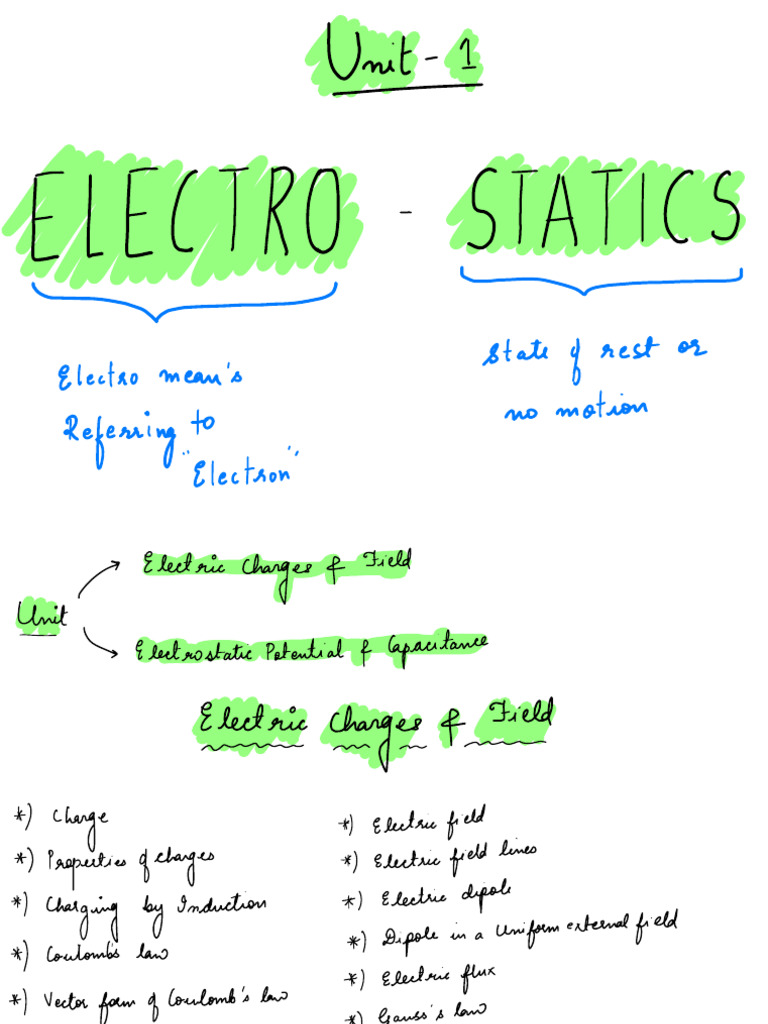 Unit - 1
ELECTRO - STATICS
Electro mean's
Referring to
"Electron"
State of rest or
no motion
Electric Charges & Field
Unit
Electrostatic Potential & Capacitance
Electric Charges & Field
*) Charge
*) Properties of charges
*) Charging by Induction
*) Coulomb's law
*) Vector form of Coulomb's law
*) Electric field
*) Electric field lines
*) Electric dipole
*) Dipole in a Uniform external field
*) Electric flux
*) Gauss's law